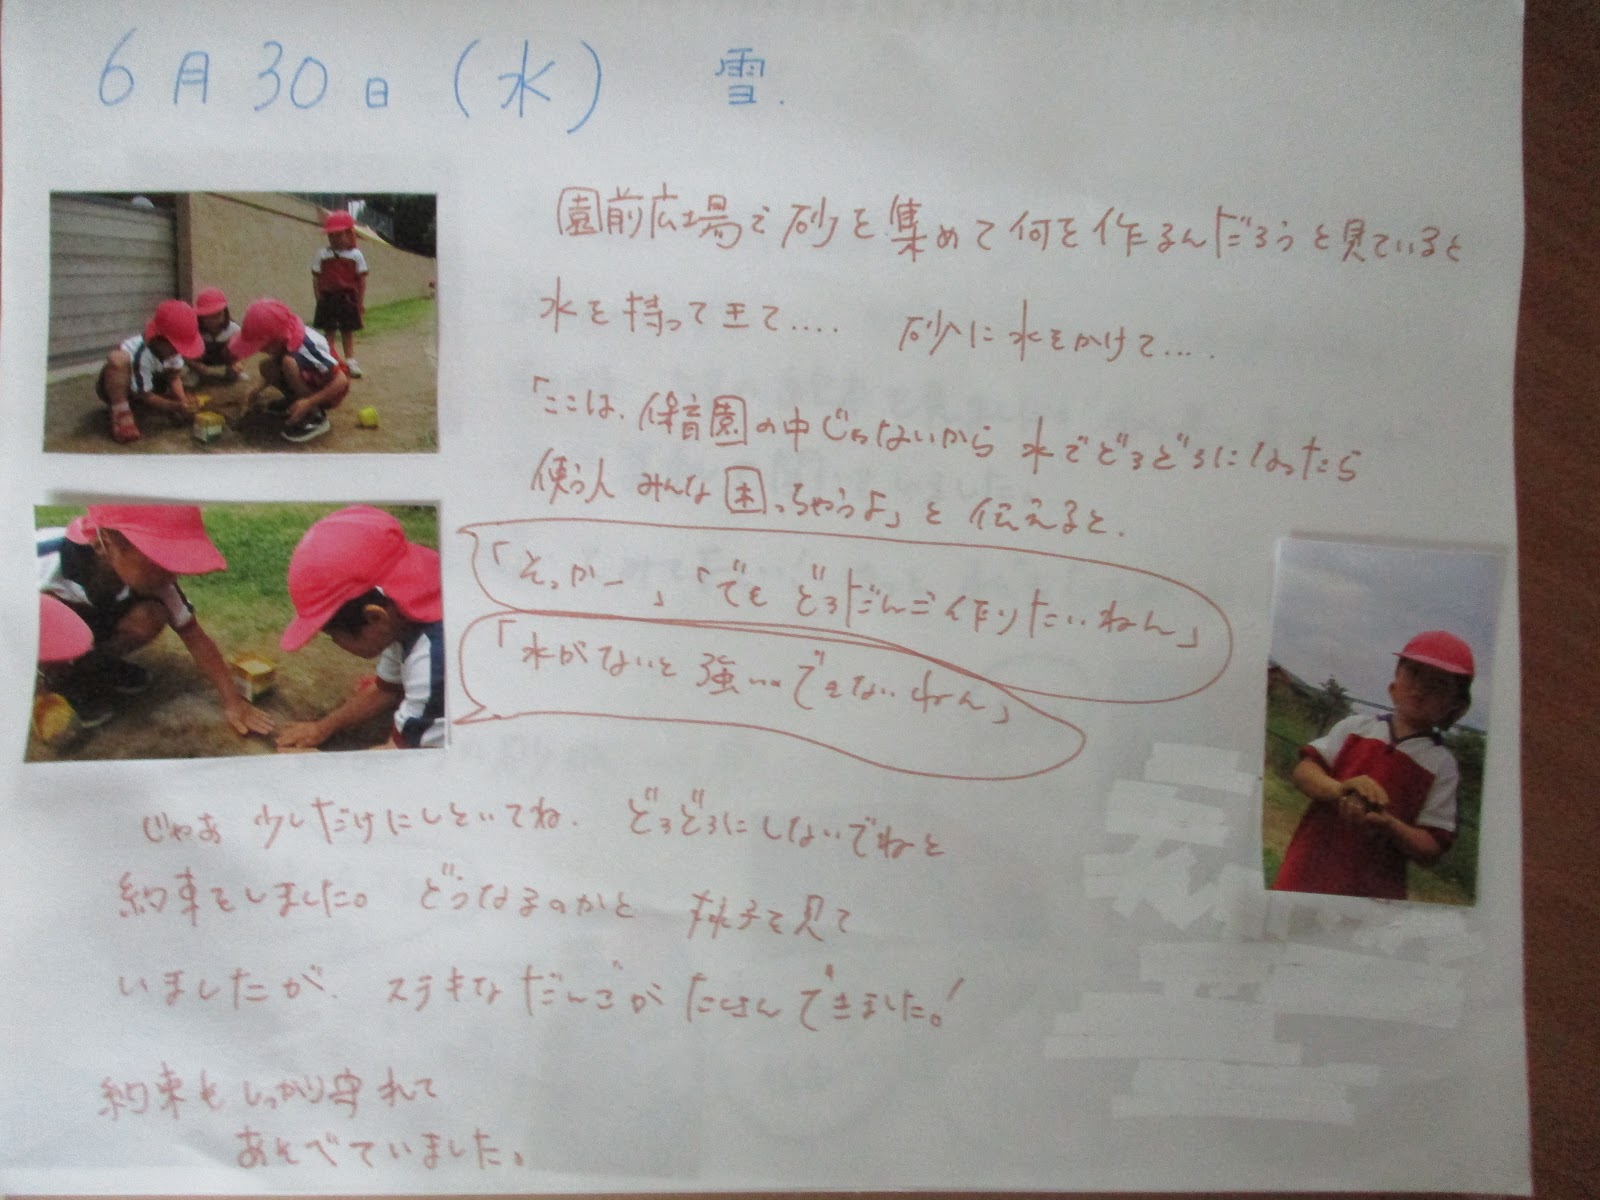 6月30日(水) 雪.
園前広場で砂を集めて何を作るんだろうと見ていると
水を持ってきて.... 砂に水をかけて....
「ここは、保育園の中じゃないから 水でどろどろになったら
使う人 みんな困っちゃうよ」と 伝えると、
「そっかー」「でも どろだんご作りたいねん」
「水がないと 強いのできないねん」
じゃあ 少しだけにしといてね. どろどろにしないでねと
約束をしました。 どうなるのかと 様子を見て
いましたが、ステキなだんごが たくさんできました!
約束もしっかり守れて
あそべていました。